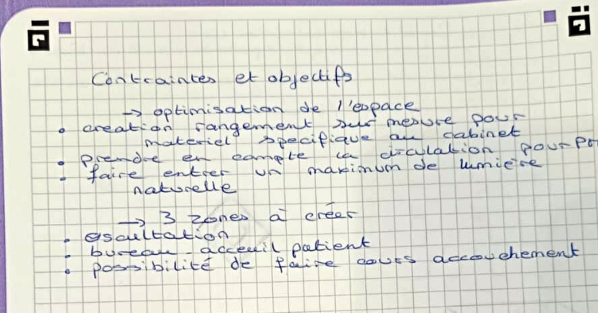 Contraintes et objectifs
→ optimisation de l'espace
• creation rangement sur mesure pour
materiel spécifique au cabinet
• prendre en compte la circulation pour
• faire entrer un maximum de lumière
naturelle
→ 3 zones à créer
• oscultation
• bureau - acceuil patient
• possibilité de faire cours accouchement